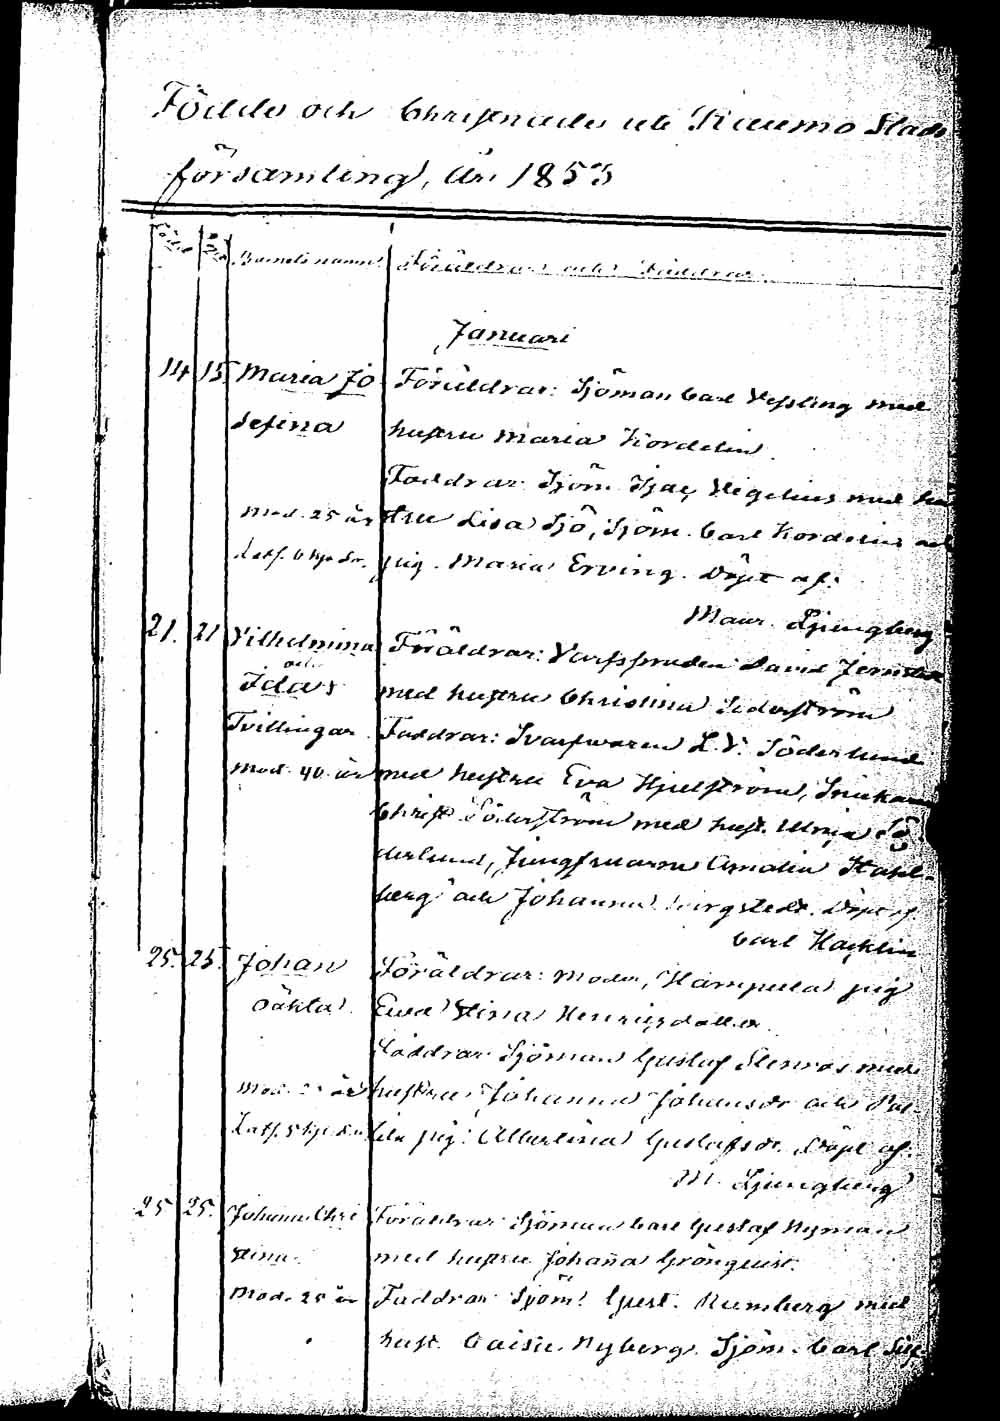 Födde och Christnade uti Raumo Stads
församling, år 1853
Födde Döpte Barnets namn Föräldrar och Faddrar.
Januari
14. 15. Maria Jo- Föräldrar: Sjöman Carl Vessling med
sefina hustru Maria Kordelin.
Faddrar: Sjöm. Isac Vigelius med hu-
mod. 25 år stru Lisa Sjö, Sjöm. Carl Kordelin och
pig. Maria Erving. Döpt af:
Maur. Ljungberg
21. 21 Vilhelmina Föräldrar: David
och
Ida med hustru Christina Söderström
Tvillingar Faddrar: Svarfvaren L.V. Söderlund
mod. 40 år med hustru Eva Hjelström, Snickare
Christ. Söderström med hust. Ulrica Sö-
derlund, Jungfruarna Amalia Stahl-
berg och Johanna Döpt af
Carl Hacklin
25. 25. Johan Föräldrar: Moder, pig
Oäkta. Eva Stina Henricsdotter
Faddrar: Sjöman Gustaf Stenros med
mod. år hustru Johanna Johansdr och
pig. Albertina Gustafsdr. Döpt af:
M. Ljungberg
25 25. Johanna Chri- Föräldrar: Sjöman Carl Gustaf Nyman
stina. med hustru Johana Grönquist.
mod. 25 år Faddrar: Sjöm. Gust. Rumberg med
hust. Caisa Nyberg. Sjöm. Carl